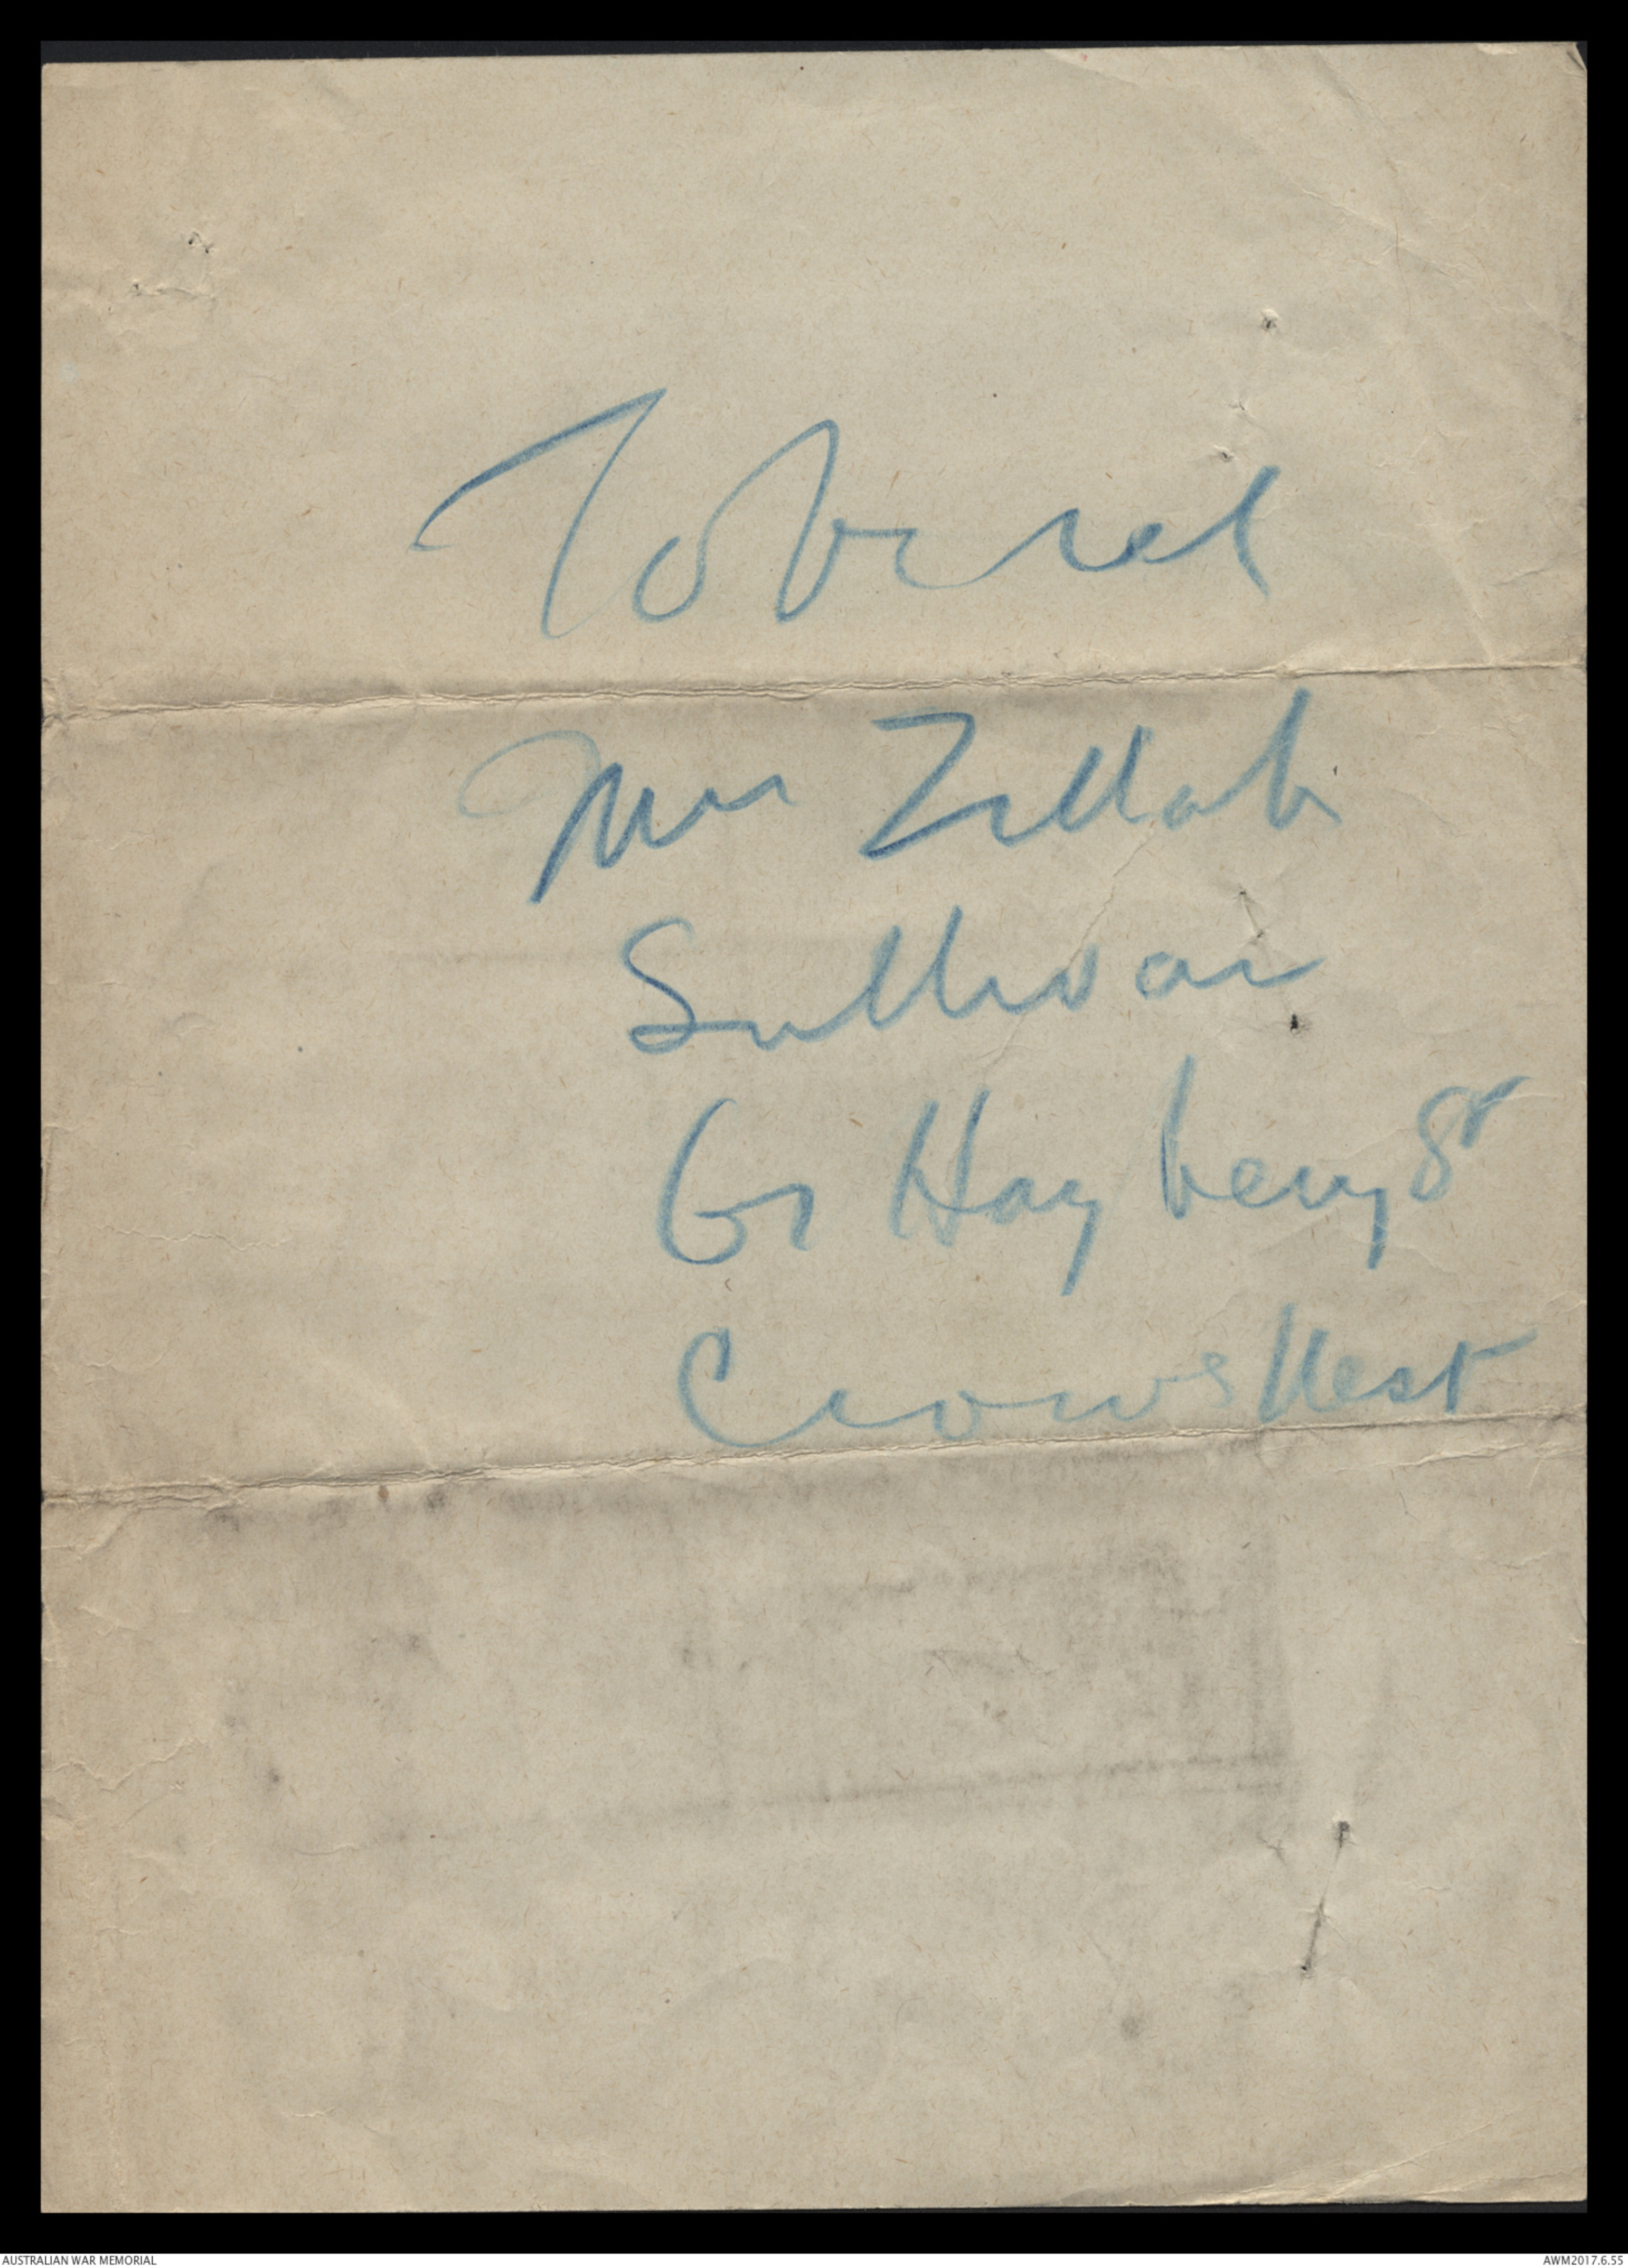 To
Mrs Zillah
Sullivan
61 Hayberry St
Crows Nest
AUSTRALIAN WAR MEMORIAL AWM2017.6.55